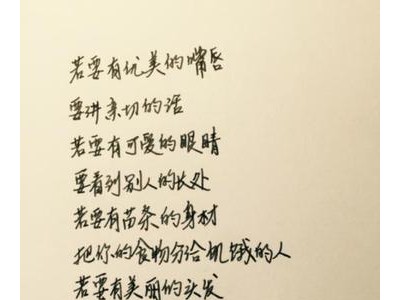 若要有优美的嘴唇
要讲亲切的话
若要有可爱的眼睛
要看到别人的长处
若要有苗条的身材
把你的食物分给饥饿的人
若要有美丽的头发